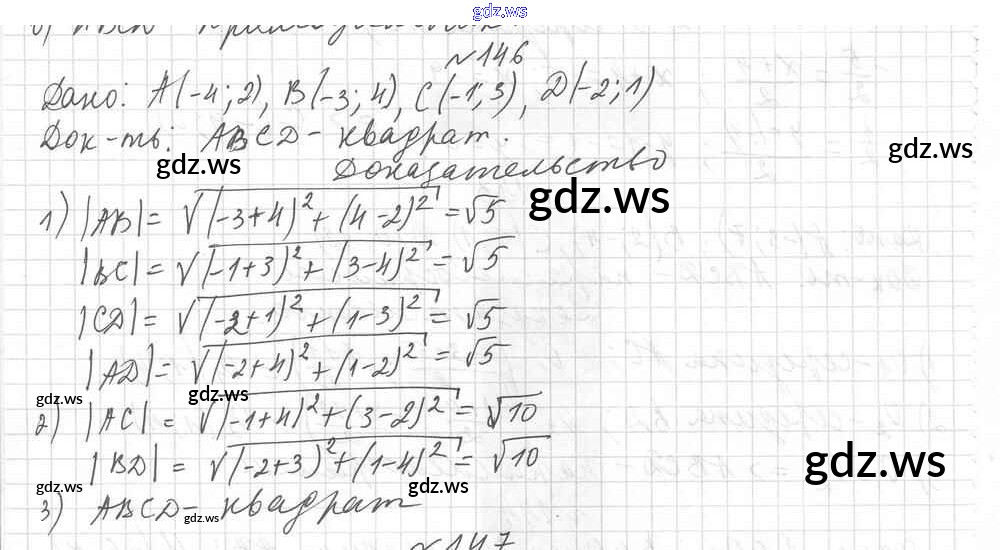 gdz.ws
№146
Дано: A(-4; 2), B(-3; 4), C(-1; 3), D(-2; 1)
Док-ть: ABCD - квадрат.
gdz.ws
gdz.ws
Доказательство
gdz.ws
1) |AB| = √((-3+4)² + (4-2)²) = √5
|BC| = √((-1+3)² + (3-4)²) = √5
|CD| = √((-2+1)² + (1-3)²) = √5
|AD| = √((-2+4)² + (1-2)²) = √5
gdz.ws
gdz.ws
2) |AC| = √((-1+4)² + (3-2)²) = √10
|BD| = √((-2+3)² + (1-4)²) = √10
gdz.ws
gdz.ws
gdz.ws
3) ABCD - квадрат
gdz.ws
№147